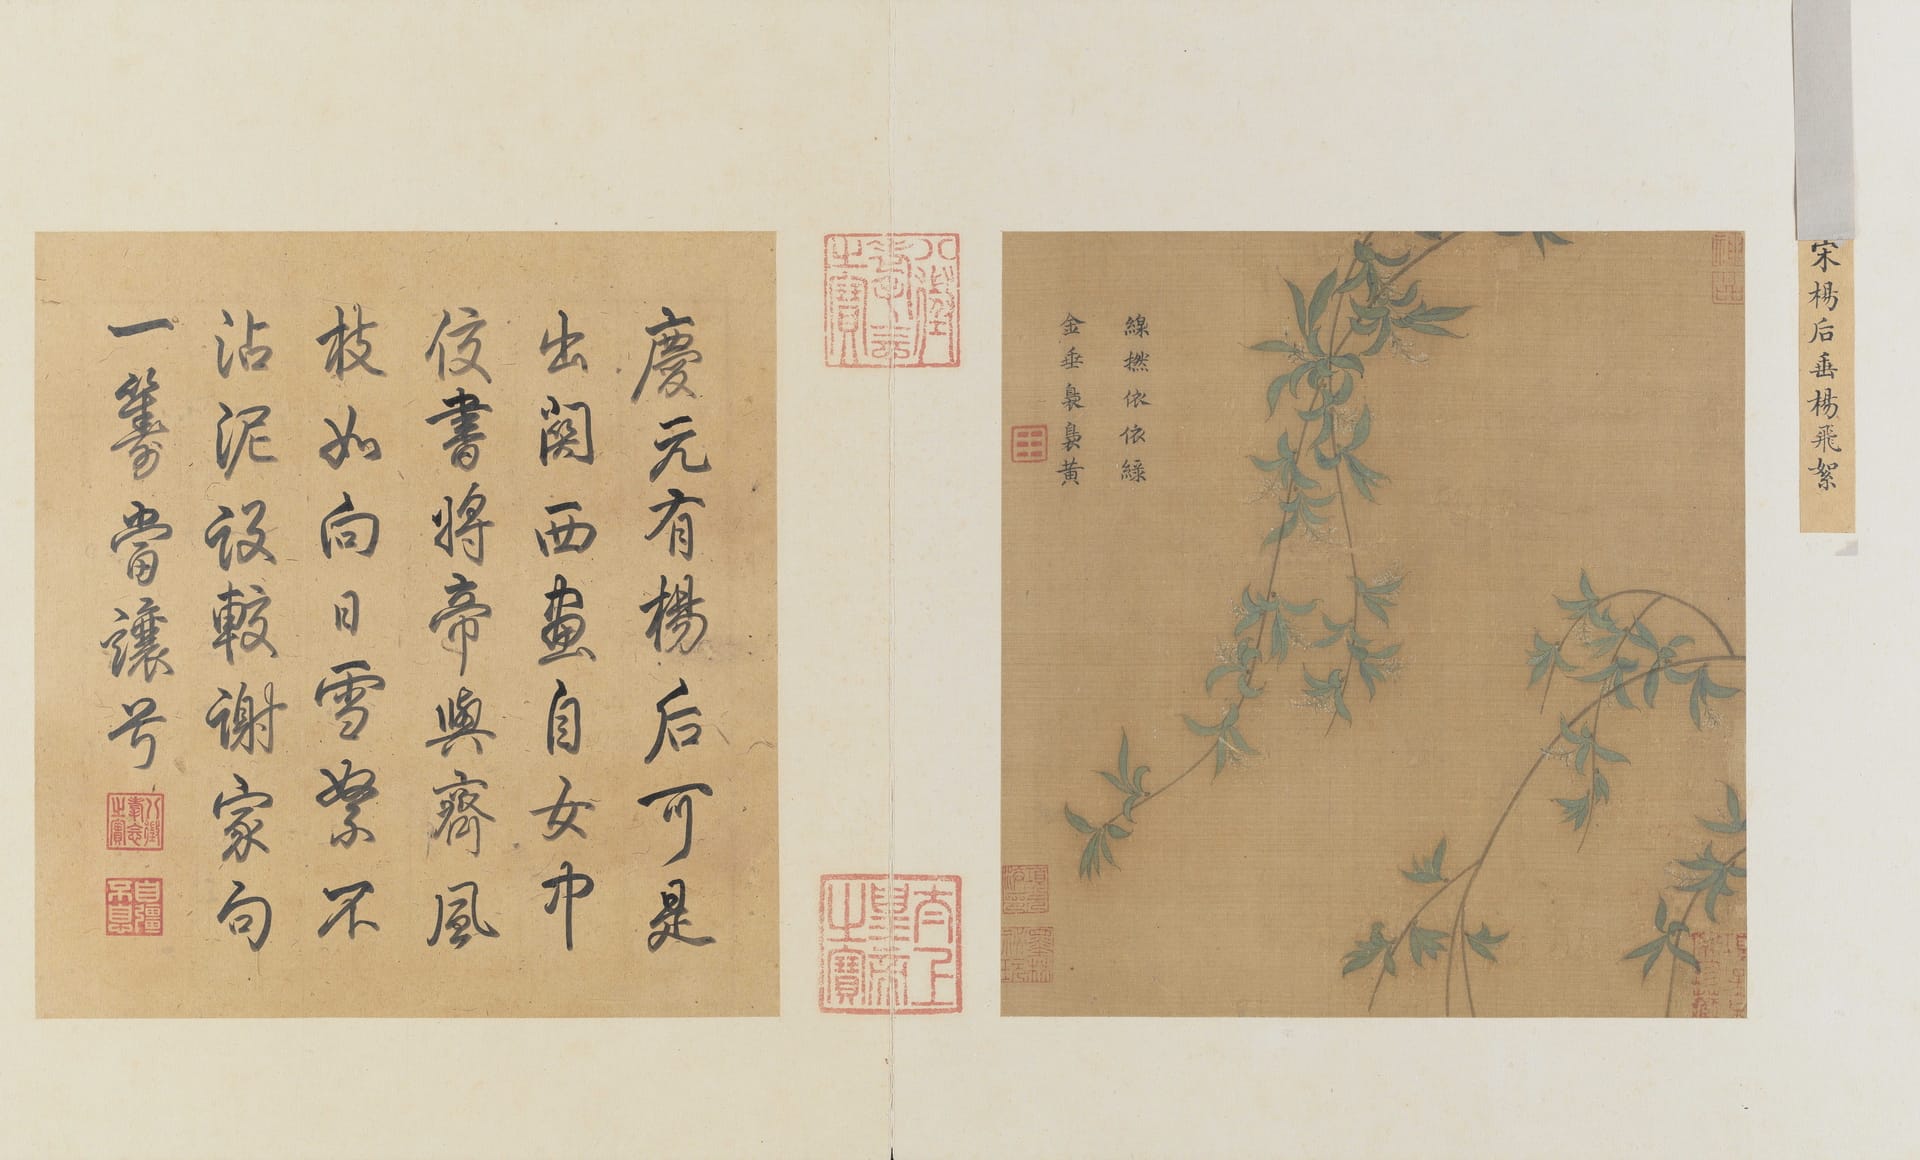 宋楊后垂楊飛絮
線撚依依綠
金垂裊裊黃
八徵耄念之寶
太上皇帝之寶
慶元有楊后可是
出関西畫自女中
佼書將帝與齊風
枝如向日雪絮不
沾泥设較谢家句
一籌當讓兮
八徵耄念之寶
自彊不息